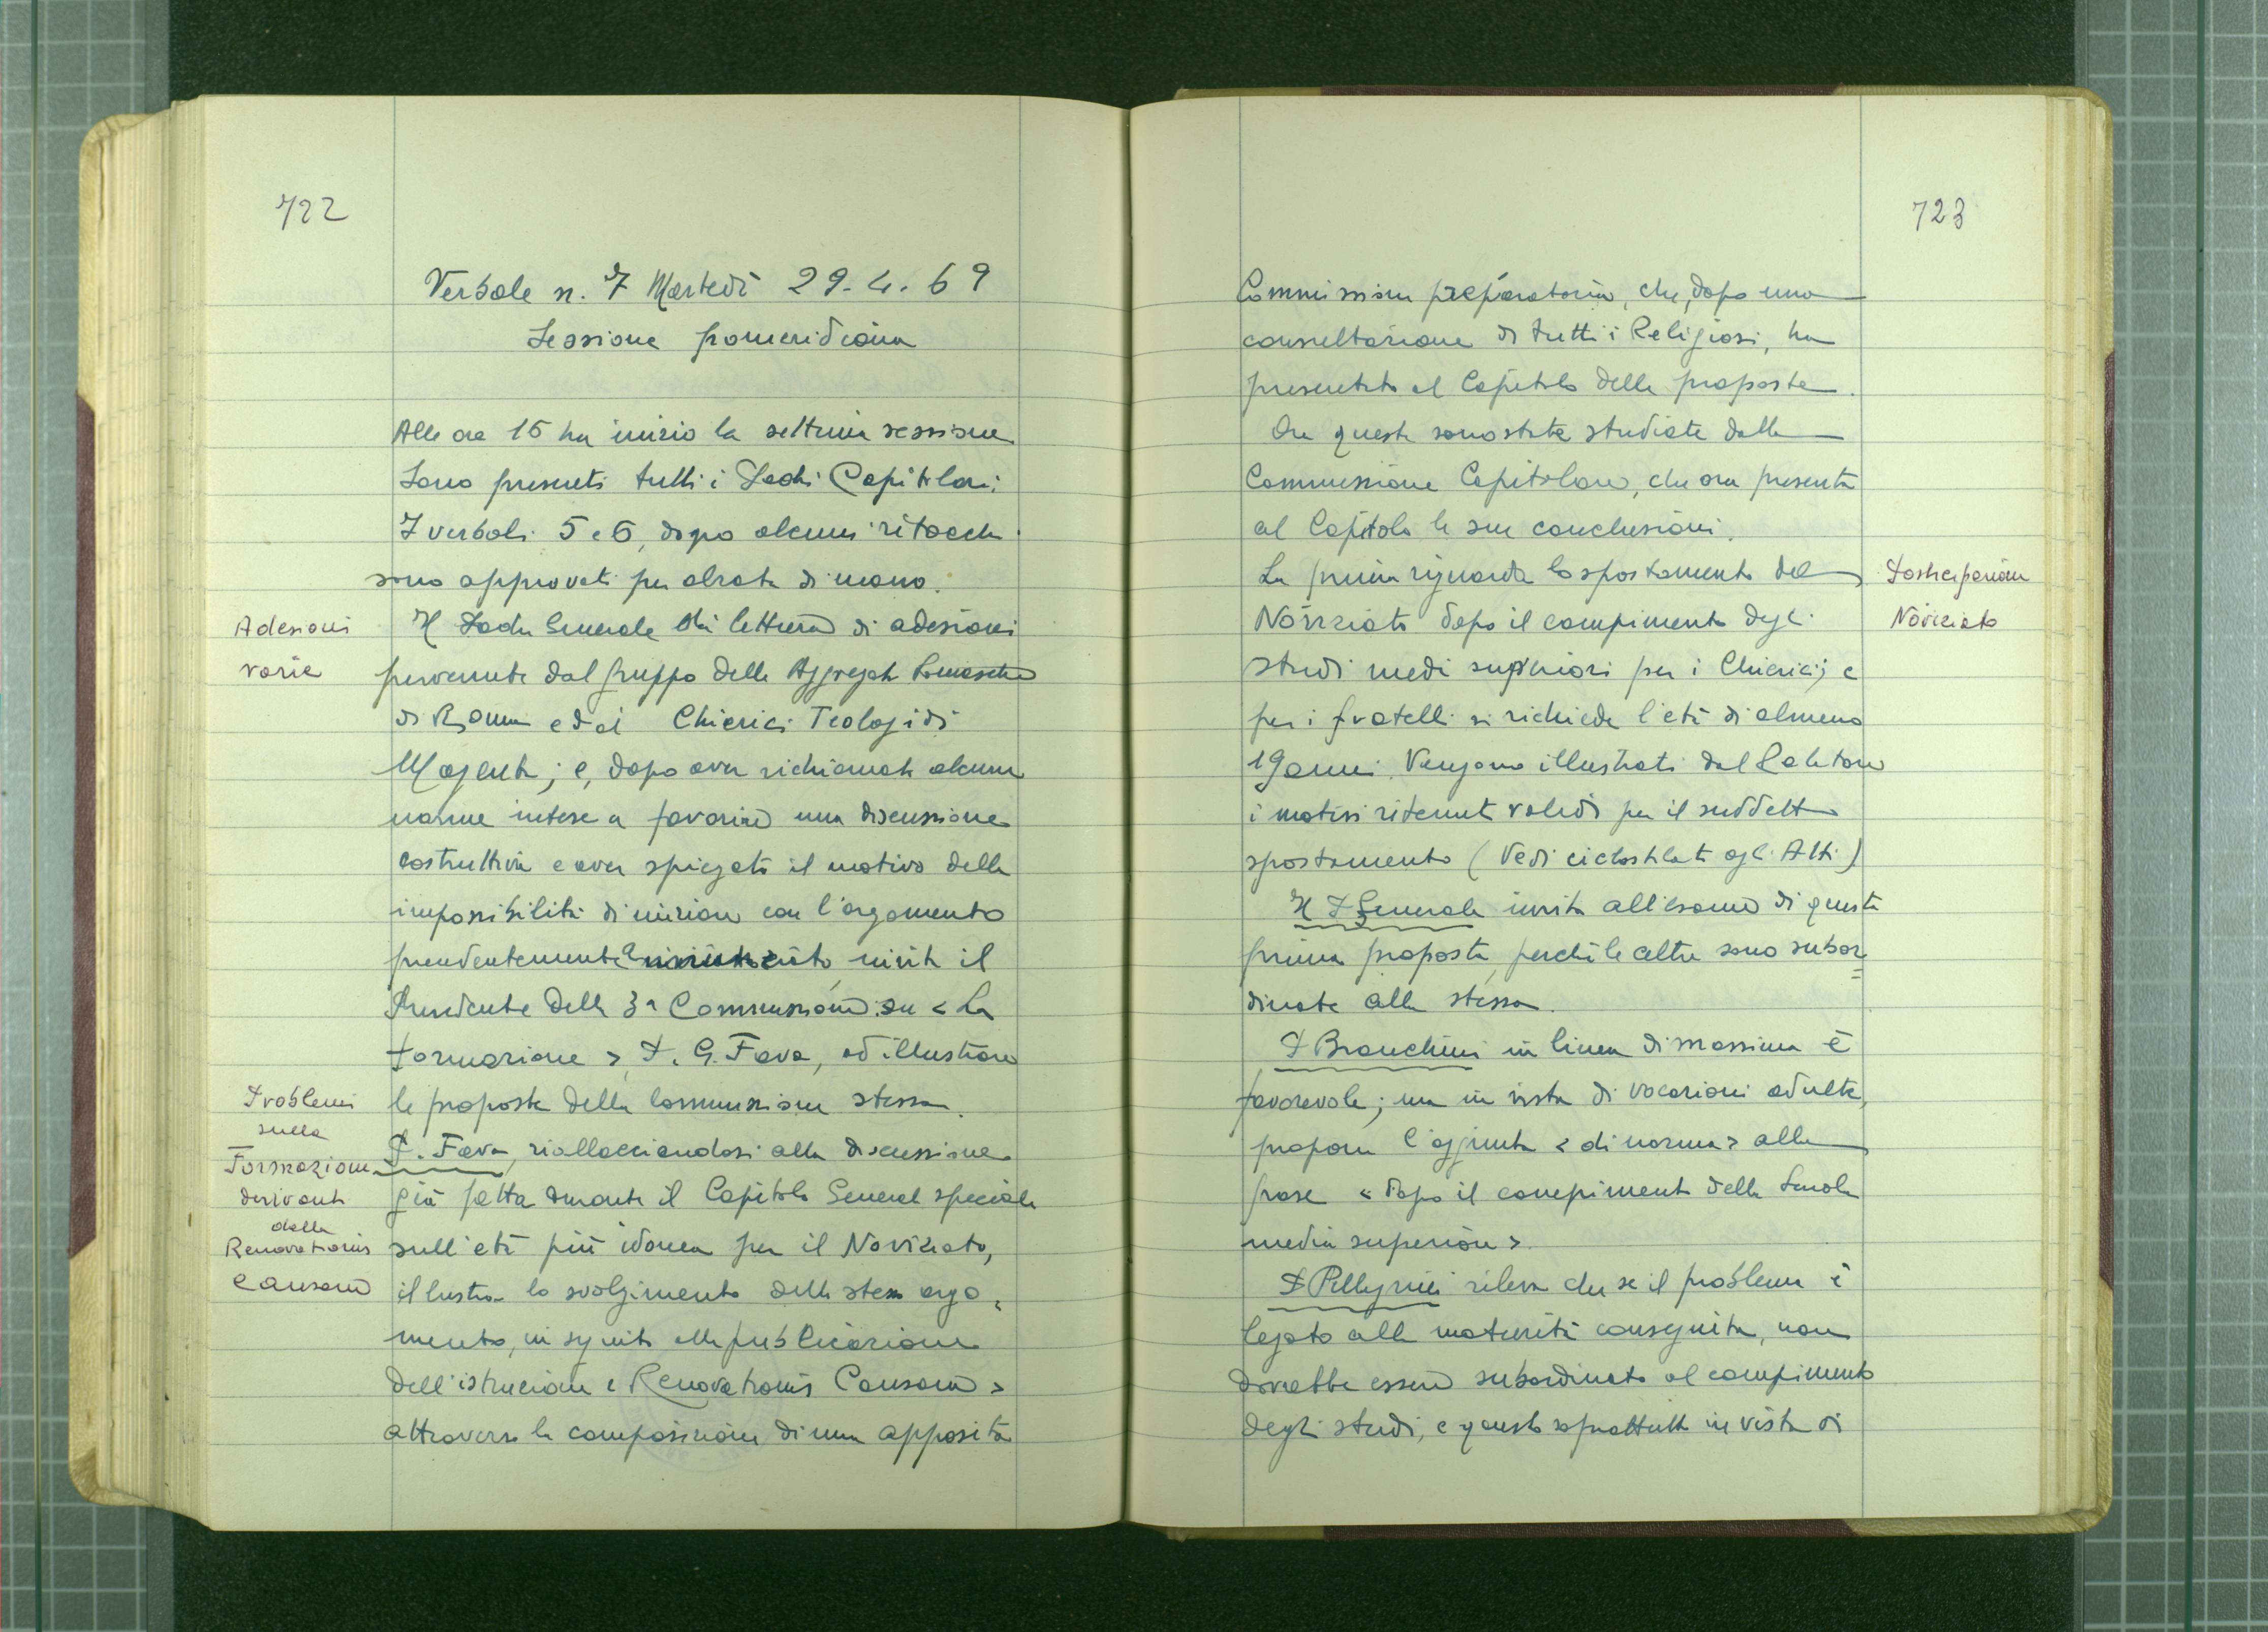 722
Verbale n. 7 Martedì 29-4-69
Sessione pomeridiana
Alle ore 16 ha inizio la settima sessione
Sono presenti tutti i Padri Capitolari
I verbali 5 e 6, dopo alcuni ritocchi
sono approvati per alzata di mano.
Adesioni
varie
Il Padre Generale dà lettura di adesioni
pervenute dal gruppo delle Aggregate Somasche
di Roma e dai Chierici Teologi di
Magenta; e, dopo aver richiamate alcune
norme intese a favorire una discussione
costruttiva e aver spiegato il motivo della
impossibilità di iniziare con l'argomento
precedentemente annunciato invita il
Presidente della 3ª Commissione su < La
formazione >, P. G. Fava, ad illustrare
le proposte della Commissione stessa.
Problemi
sulla
Formazione
derivanti
dalla
Renovationis
Causam
P. Fava, riallacciandosi alla discussione
già fatta durante il Capitolo General speciale
sull'età più idonea per il Noviziato,
illustra lo svolgimento dello stesso argo=
mento, in seguito alla pubblicazione
dell'istruzione < Renovationis Causam >
attraverso la composizione di una apposita
723
Commissione preparatoria, che, dopo una
consultazione di tutti i Religiosi, ha
presentato al Capitolo delle proposte.
Ora queste sono state studiate dalla
Commissione Capitolare, che ora presenta
al Capitolo le sue conclusioni.
La prima riguarda lo spostamento del
Posticipazione
Noviziato
Noviziato dopo il compimento degli
studi medi superiori per i Chierici; e
per i fratelli si richiede l'età di almeno
19 anni. Vengono illustrati dal Relatore
i motivi ritenuti validi per il suddetto
spostamento (Vedi ciclostilati agli Atti)
Il P Generale invita all'esame di questa
prima proposta, perché le altre sono subor=
dinate alla stessa.
P Bianchini in linea di massima è
favorevole; ma in vista di vocazioni adulte,
propone l'aggiunta < di norma > alla
frase < dopo il compimento della Scuola
media superiore >.
P Pellegrini rileva che se il problema è
legato alla maturità conseguita, non
dovrebbe essere subordinato al compimento
degli studi, e questo soprattutto in vista di